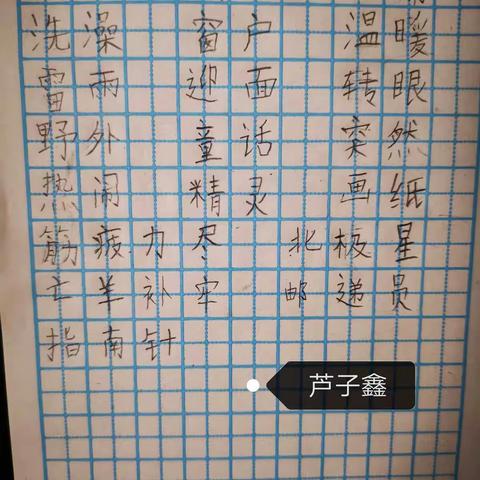 洗澡 窗户 温暖
雷雨 迎面 转眼
野外 童话 突然
热闹 精灵 画纸
筋疲力尽 北极星
亡羊补牢 邮递员
指南针
芦子鑫